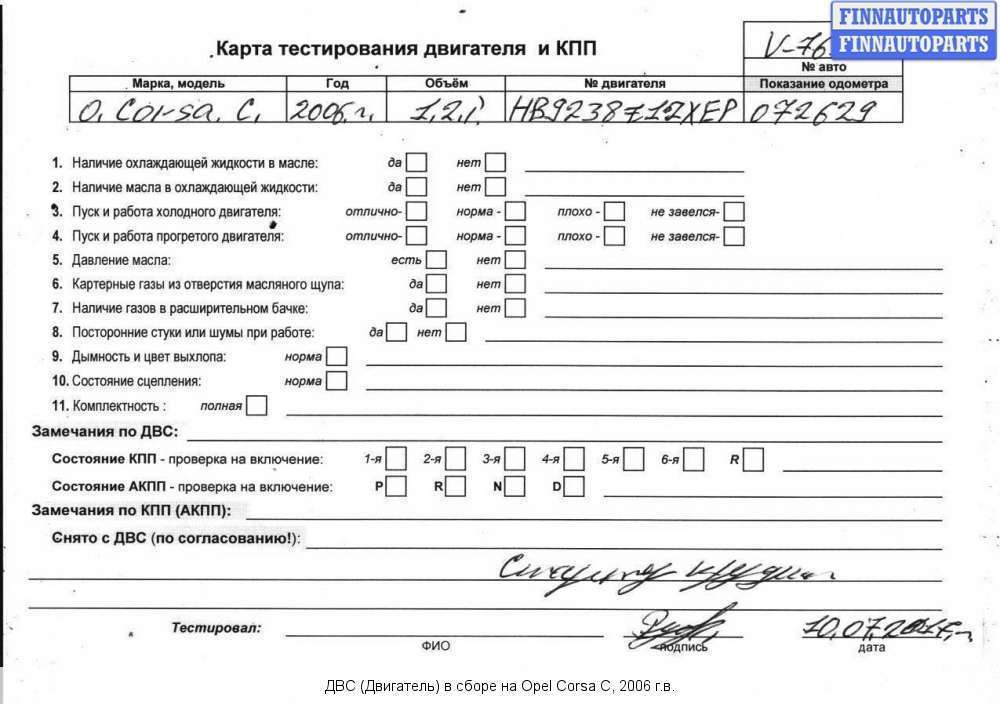 FINNAUTOPARTS
FINNAUTOPARTS
Карта тестирования двигателя и КПП
V-76
№ авто
Марка, модель Год Объём № двигателя Показание одометра
O. Corsa. C. 2006г. 1,2 i HB9238712XEP 072629
1. Наличие охлаждающей жидкости в масле: да нет
2. Наличие масла в охлаждающей жидкости: да нет
3. Пуск и работа холодного двигателя: отлично- норма - плохо - не завелся-
4. Пуск и работа прогретого двигателя: отлично- норма - плохо - не завелся-
5. Давление масла: есть нет
6. Картерные газы из отверстия масляного щупа: да нет
7. Наличие газов в расширительном бачке: да нет
8. Посторонние стуки или шумы при работе: да нет
9. Дымность и цвет выхлопа: норма
10. Состояние сцепления: норма
11. Комплектность : полная
Замечания по ДВС:
Состояние КПП - проверка на включение: 1-я 2-я 3-я 4-я 5-я 6-я R
Состояние АКПП - проверка на включение: P R N D
Замечания по КПП (АКПП):
Снято с ДВС (по согласованию!):
Тестировал:
ФИО подпись дата
ДВС (Двигатель) в сборе на Opel Corsa C, 2006 г.в.